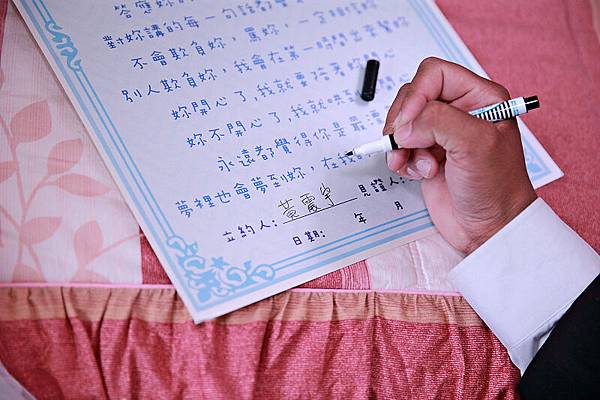 答應妳
對妳講的每一句話都
不會欺負妳,罵妳,一定相信妳
別人欺負妳,我會在第一時間出來幫妳
妳開心了,我就要陪著妳開心
妳不開心了,我就哄到妳開心
永遠都覺得你是最漂
夢裡也會夢到妳,在我
立約人:黃震宇 見證人:
日期: 年 月